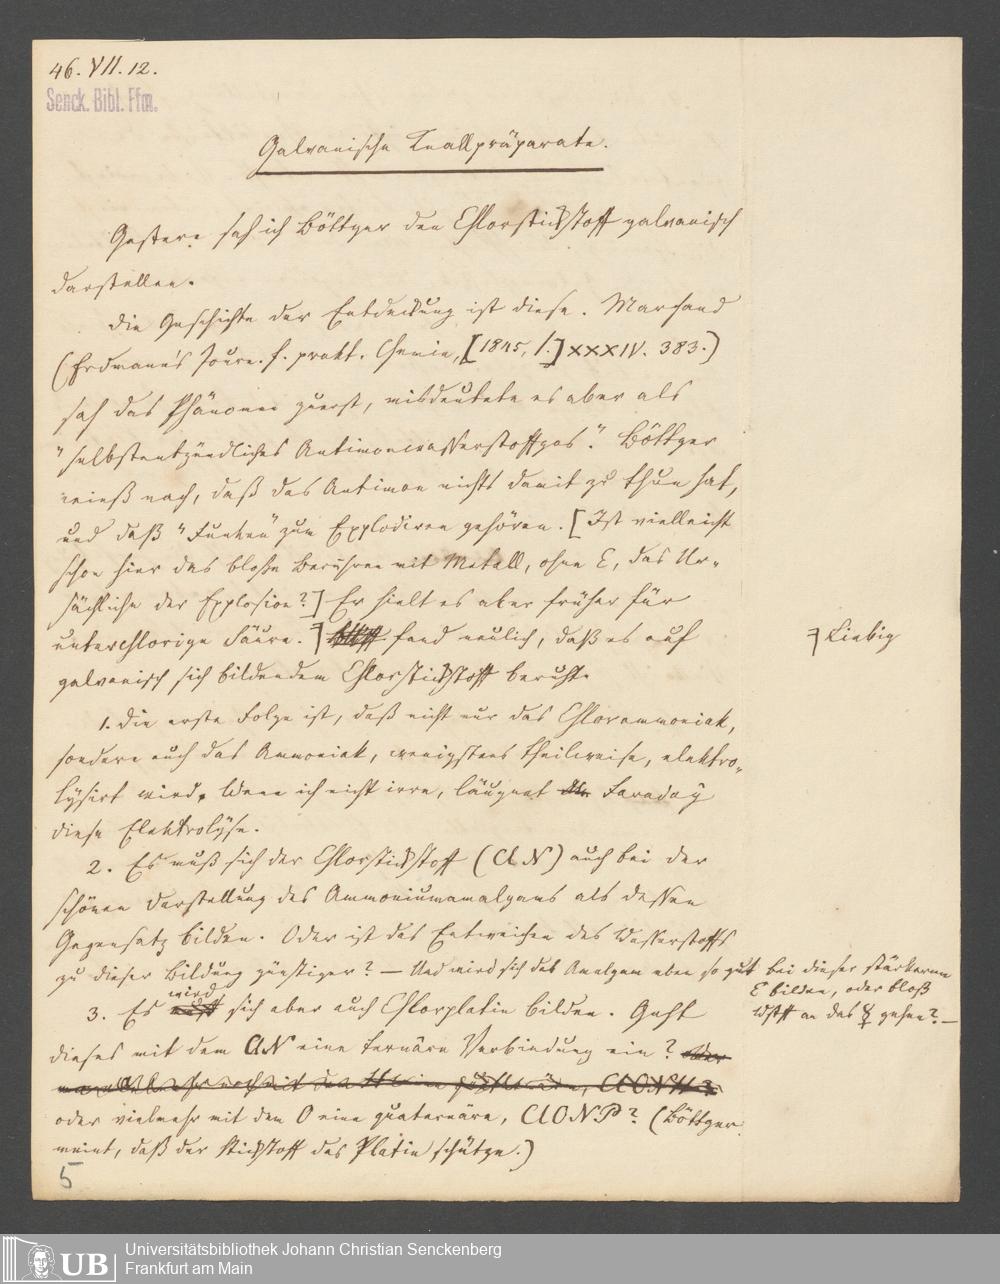 46. VII. 12.
Senck. Bibl. Ffm.
Galvanische Knallpräparate.
Gestern sah ich Böttger den Chlorstickstoff galvanisch
darstellen.
Die Geschichte der Entdeckung ist diese. Marchand
(Erdmann's Journ. f. prakt. Chemie, [1845, 1.] XXXIV. 383.)
sah das Phänomen zuerst, misdeutete es aber als
"selbstentzündliches Antimonwasserstoffgas". Böttger
wieß nach, daß das Antimon nichts damit zu thun hat,
und daß "Funken" zum Explodiren gehören. [Ist vielleicht
schon hier das bloße Berühren mit Metall, ohne E, das Ur-
sächliche der Explosion?] Er hielt es aber früher für
unterchlorige Säure. fand neulich, daß es auf
Liebig
galvanisch sich bildendem Chlorstickstoff beruht.
1. Die erste Folge ist, daß nicht nur das Chlorammoniak,
sondern auch das Ammoniak, wenigstens theilweise, elektro-
lysirt wird. Wenn ich nicht irre, läugnet Faraday
diese Elektrolyse.
2. Es muß sich der Chlorstickstoff (Cl N) auch bei der
schönen Darstellung des Ammoniumamalgams als dessen
Gegensatz bilden. Oder ist das Entweichen des Wasserstoffs
zu dieser Bildung günstiger? — Und wird sich das Amalgam eben so gut bei dieser stärkeren
E bilden, oder bloß
Wstff an das ☿ gehen? —
3. Es wird sich aber auch Chlorplatin bilden. Geht
dieses mit dem ClN eine ternäre Verbindung ein? oder
oder vielmehr mit dem O eine quaternäre, ClONP? (Böttger
meint, daß der Stickstoff das Platin schütze.)
5
UB
Universitätsbibliothek Johann Christian Senckenberg
Frankfurt am Main